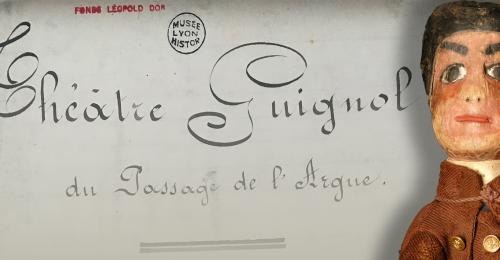 FONDS LÉOPOLD DOR
MUSÉE
LYON
HISTOR
Théâtre Guignol
du Passage de l'Argue.